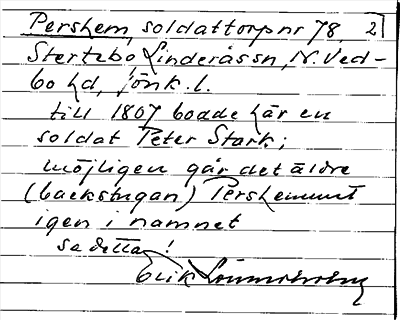 Pershem, soldattorp nr 78, 2
Stertebo Linderås sn, N. Ved-
bo hd, Jönk. l.
till 1807 bodde här en
soldat Peter Stark;
möjligen går det äldre
(backstugan) Pershemmet
igen i namnet
se detta!
Erik